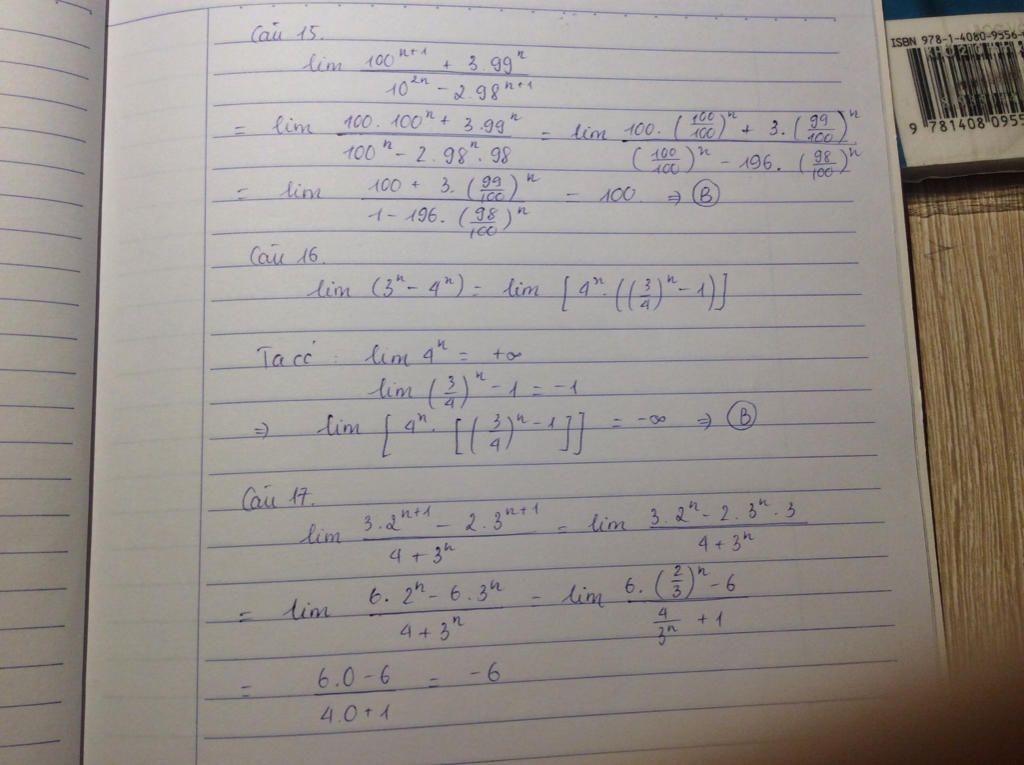 Câu 15.
lim (100^{n+1} + 3.99^n)/(10^{2n} - 2.98^{n+1})
= lim (100.100^n + 3.99^n)/(100^n - 2.98^n.98) = lim (100.(100/100)^n + 3.(99/100)^n)/((100/100)^n - 196.(98/100)^n)
= lim (100 + 3.(99/100)^n)/(1 - 196.(98/100)^n) = 100 ⇒ Ⓑ
Câu 16.
lim (3^n - 4^n) = lim [4^n.((3/4)^n - 1)]
Ta có: lim 4^n = +∞
lim (3/4)^n - 1 = -1
⇒ lim [4^n.[(3/4)^n - 1]] = -∞ ⇒ Ⓑ
Câu 17.
lim (3.2^{n+1} - 2.3^{n+1})/(4 + 3^n) = lim (3.2^n - 2.3^n.3)/(4 + 3^n)
= lim (6.2^n - 6.3^n)/(4 + 3^n) = lim (6.(2/3)^n - 6)/(4/3^n + 1)
= (6.0 - 6)/(4.0 + 1) = -6
ISBN 978-1-4080-9556-
9 781408 0955